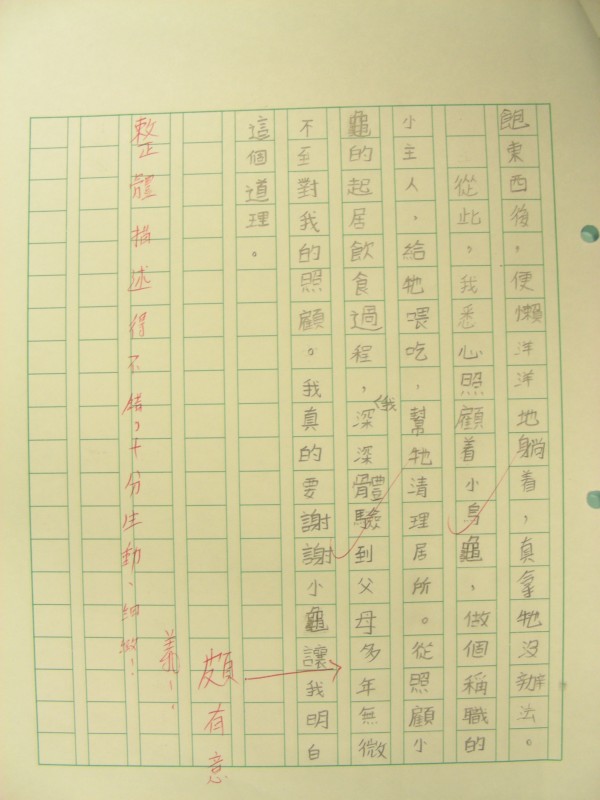 飽東西後，便懶洋洋地躺着，真拿牠沒辦法。
從此，我悉心照顧着小身龜，做個稱職的
小主人，給牠喂吃，幫牠清理居所。從照顧小
龜的起居飲食過程，深深體驗到父母多年無微
我
不至對我的照顧。我真的要謝謝小龜讓我明白
這個道理。
頗有意
義！
整體描述得不錯，十分生動、細緻！